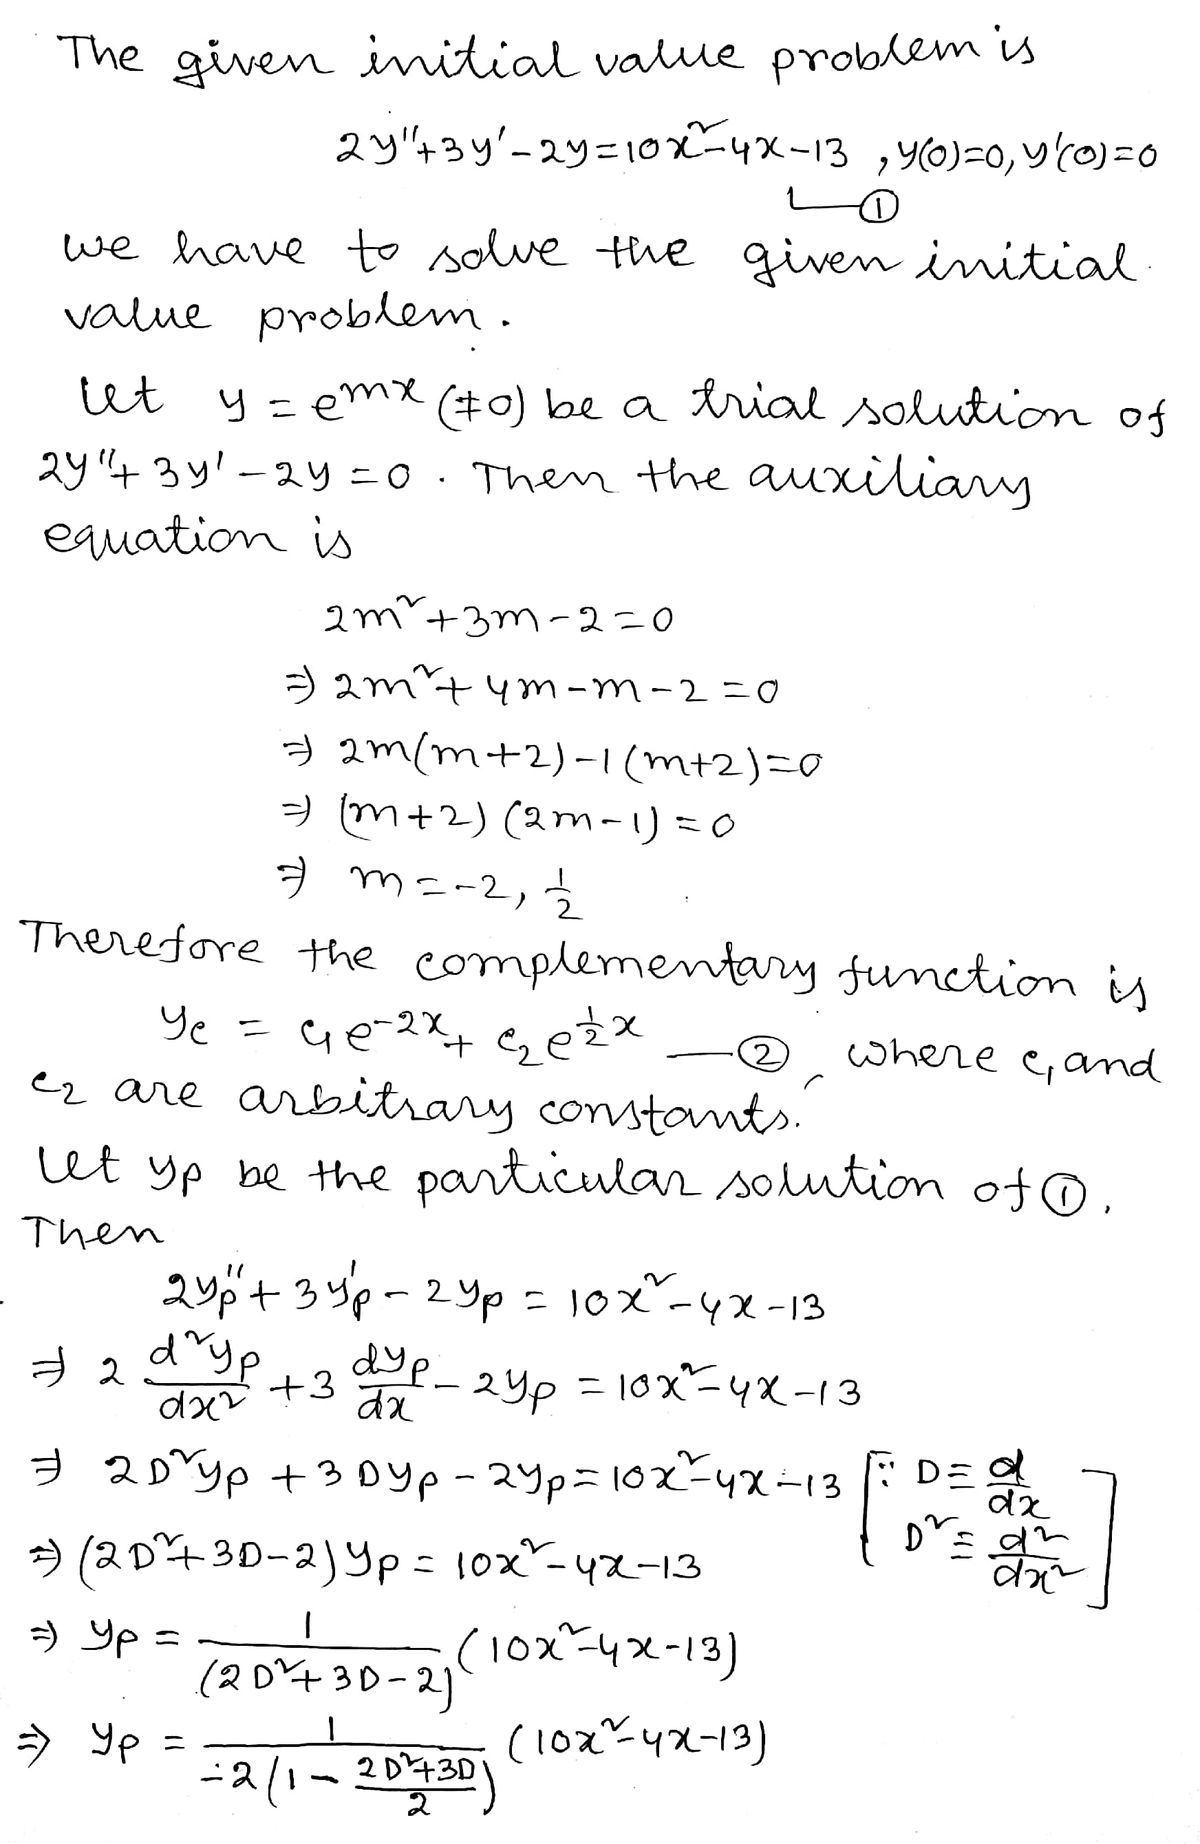 The given initial value problem is
2y''+3y'-2y=10x²-4x-13 , y(0)=0, y'(0)=0
①
we have to solve the given initial
value problem.
Let y = e^{mx} (≠0) be a trial solution of
2y''+3y'-2y=0 . Then the auxiliary
equation is
2m²+3m-2=0
⇒ 2m²+4m-m-2=0
⇒ 2m(m+2)-1(m+2)=0
⇒ (m+2)(2m-1)=0
⇒ m=-2, 1/2
Therefore the complementary function is
y_c = c₁e^{-2x}+ c₂e^{½x} —②, where c₁ and
c₂ are arbitrary constants.
Let y_p be the particular solution of ①.
Then
2y_p''+3y_p'-2y_p = 10x²-4x-13
⇒ 2 d²y_p/dx² +3 dy_p/dx - 2y_p = 10x²-4x-13
⇒ 2D²y_p +3Dy_p -2y_p=10x²-4x-13 [∵ D≡ d/dx
D²≡ d²/dx²]
⇒ (2D²+3D-2)y_p = 10x²-4x-13
⇒ y_p = 1/(2D²+3D-2) (10x²-4x-13)
⇒ y_p = 1/-2(1- (2D²+3D)/2) (10x²-4x-13)